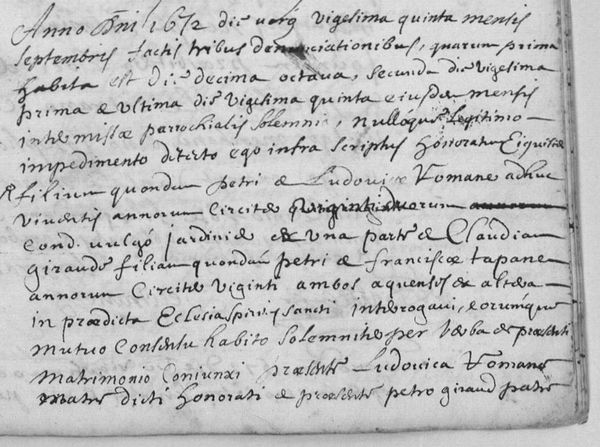 Anno Dni 1672 die vero vigesima quinta mensis
septembris factis tribus denunciationibus, quarum prima
habita est die decima octava, secunda die vigesima
prima & ultima die vigesima quinta eiusdem mensis
inter missae parrochialis solemnia, nulloque legitimo
impedimento detecto ego infra scriptus Honoratum
filium quondam petri & Ludovicae Romane adhuc
viventis annorum circiter duorum
cond. vulgo jardinie ex una parte & Claudiam
giraude filiam quondam petri & franciscae tapane
annorum circiter viginti ambos aquenses ex altera
in praedicta Ecclesia spiritus sancti interrogavi, eorumque
mutuo consensu habito solemniter per verba de praesenti
matrimonio coniunxi praesente Ludovica Romane
matre dicti Honorati & praesente petro giraud patre